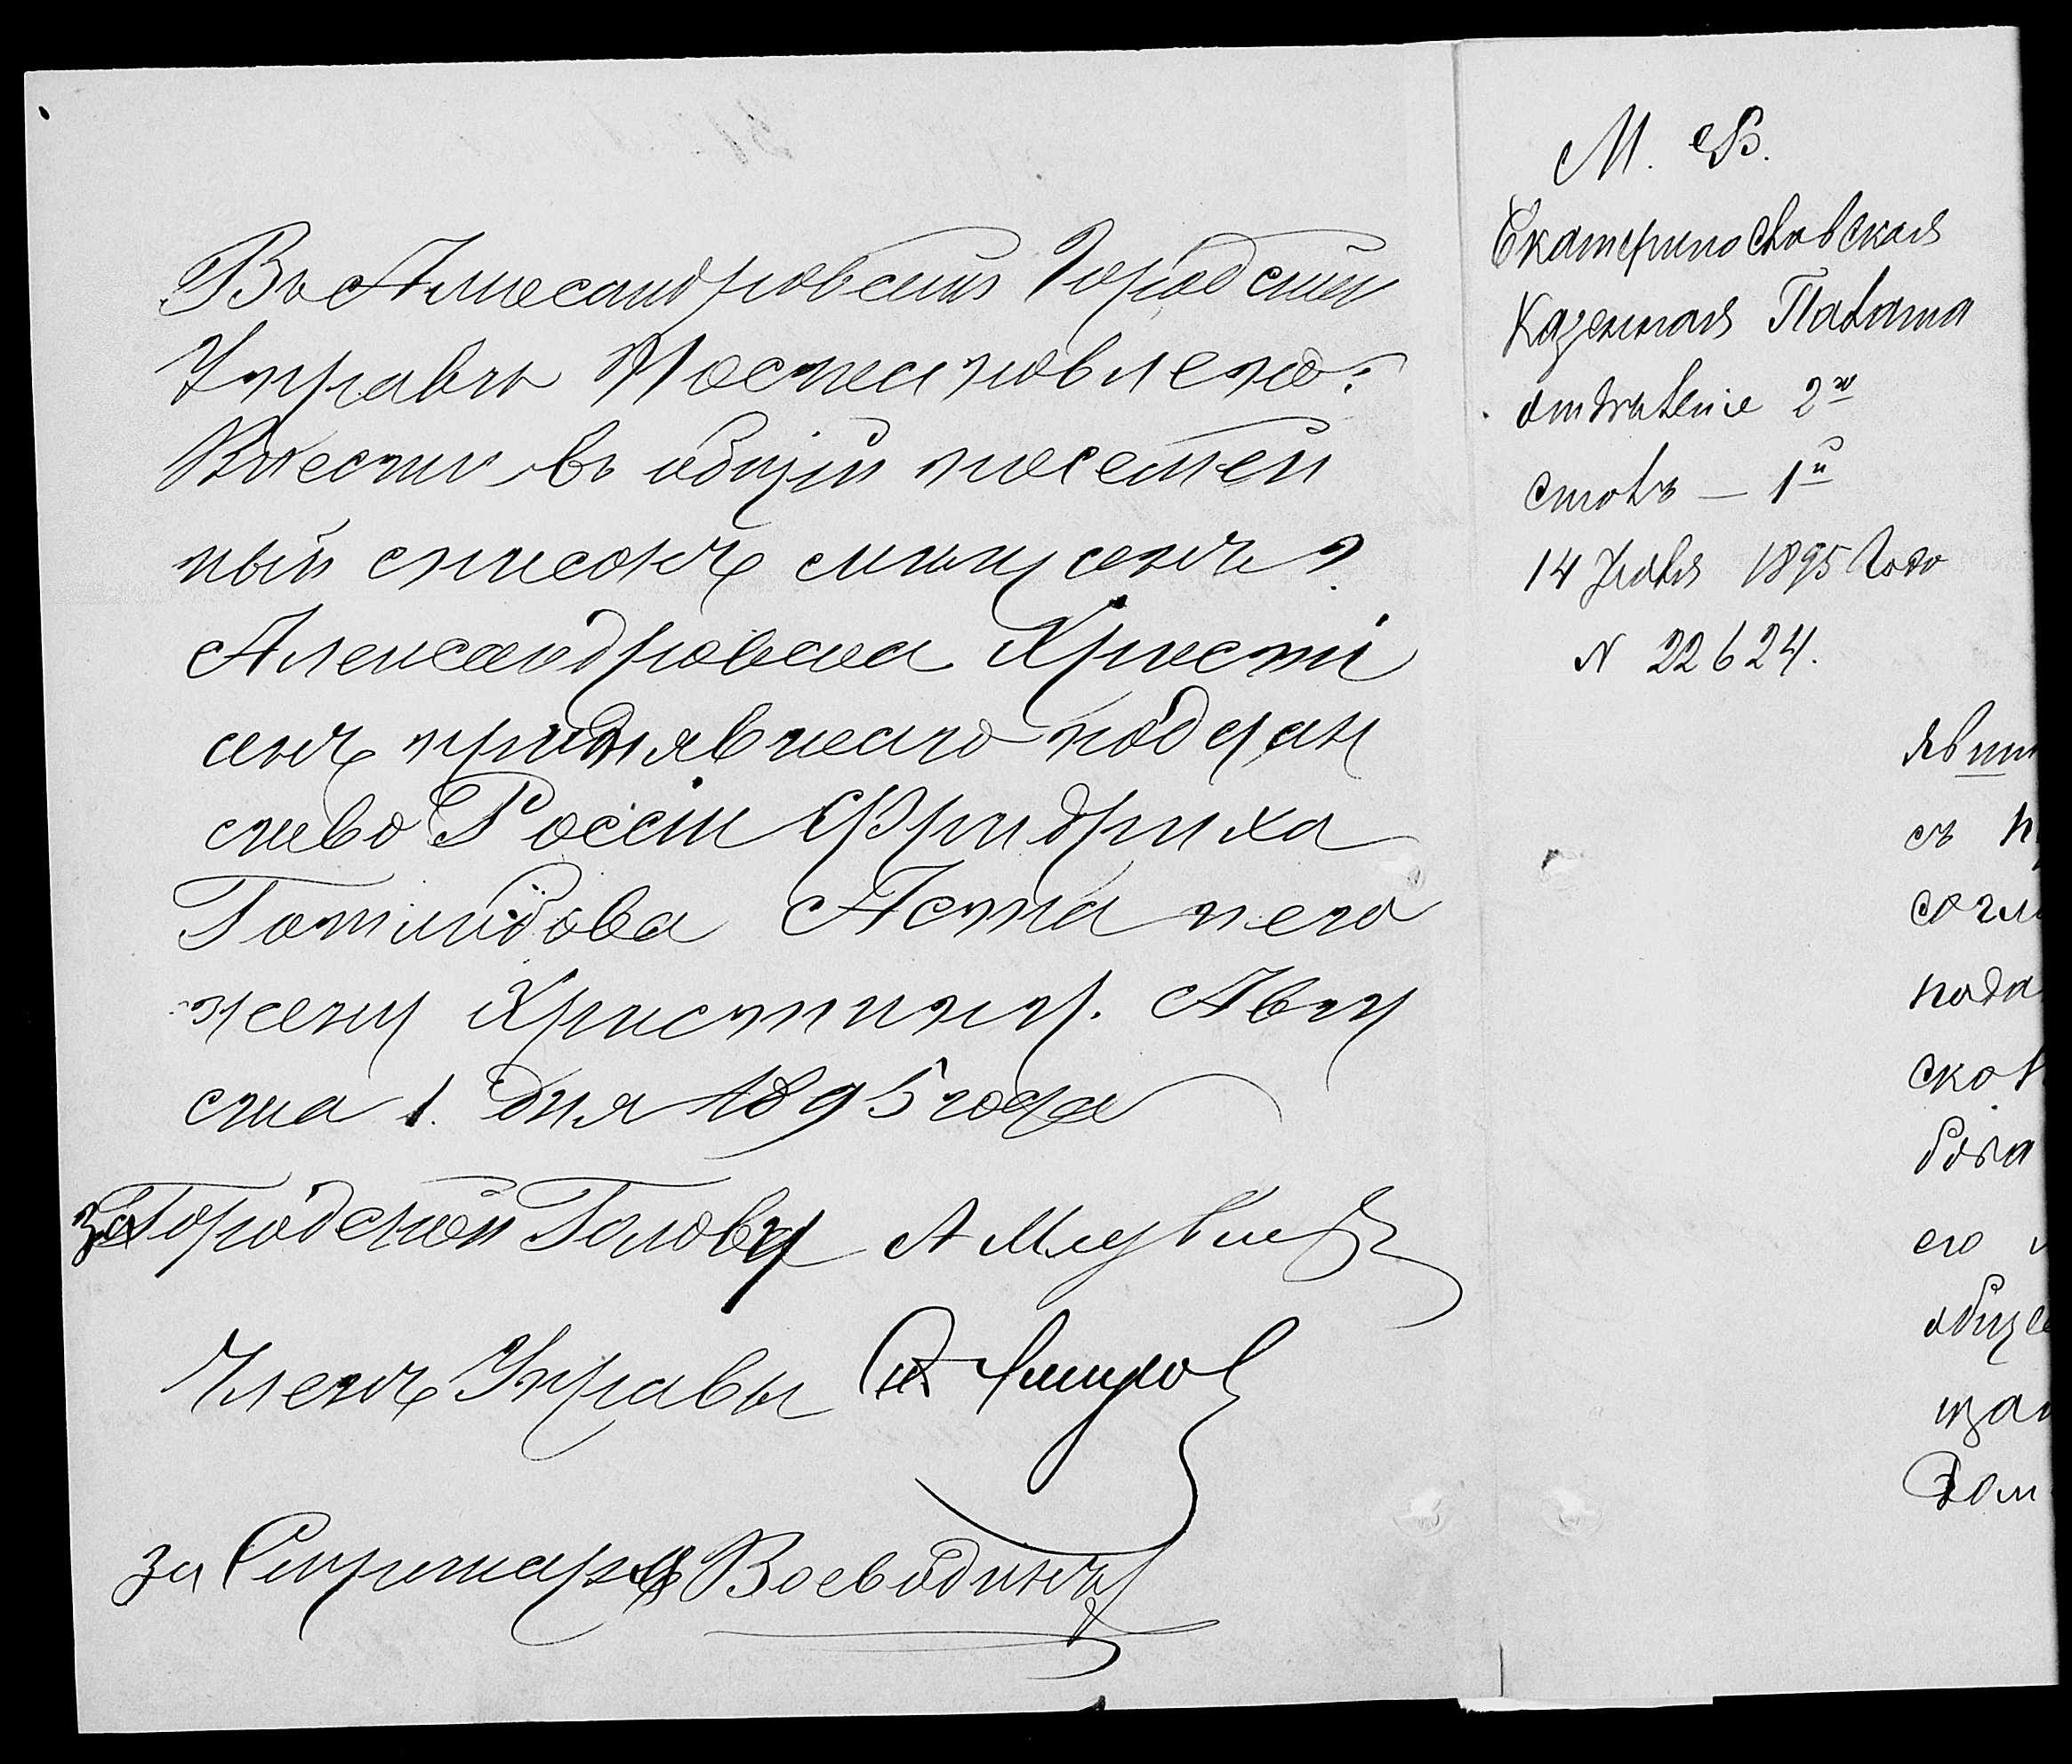 Въ Александровской Городской
Управѣ Постановлено:
Внести въ общій посемей
ный списокъ мѣщанъ г.
Александровска Христі
анъ принявшаго поддан
ство Россіи Фридриха
Готлибова
жену Христину. Авгу
ста 1. дня 1895 года
За Городской Голову А
Членъ Управы
за Секретаря Воеводинъ
М. Ф.
Екатеринославская
Казенная Палата
отдѣленіе 2е
столъ — 1й
14 Іюля 1895 года
N 22624.
яв
съ
согл
пода
ско
его
обще
щан